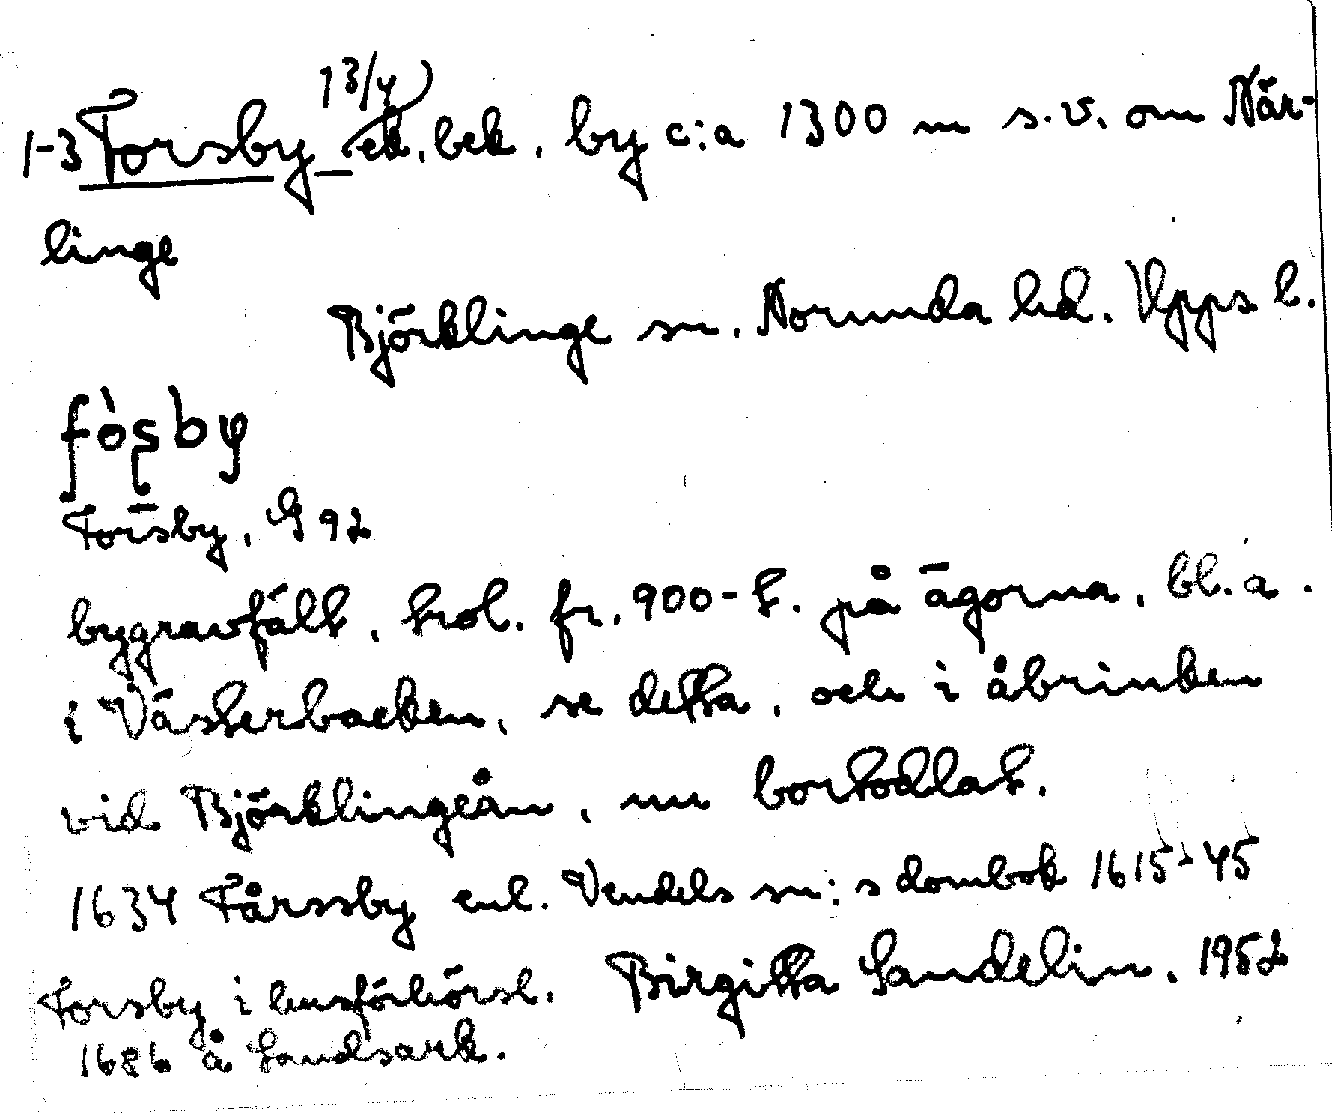 1-3 Forsby 1 3/4 ek. bek. by c:a 1300 m s.v. om När-
linge
Björklinge sn. Norunda hd. Upps l.
Forsby, G 92
bygravfält, trol. fr. 900-t. på ägorna, bl.a.
i Västerbacken, se detta, och i åbrinken
vid Björklingeån, nu bortodlat.
1634 Fårssby enl. Vendels sn:s dombok 1615-45
Forsby i husförhörsl. Birgitta Sandelin. 1952
1686 å Landsark.